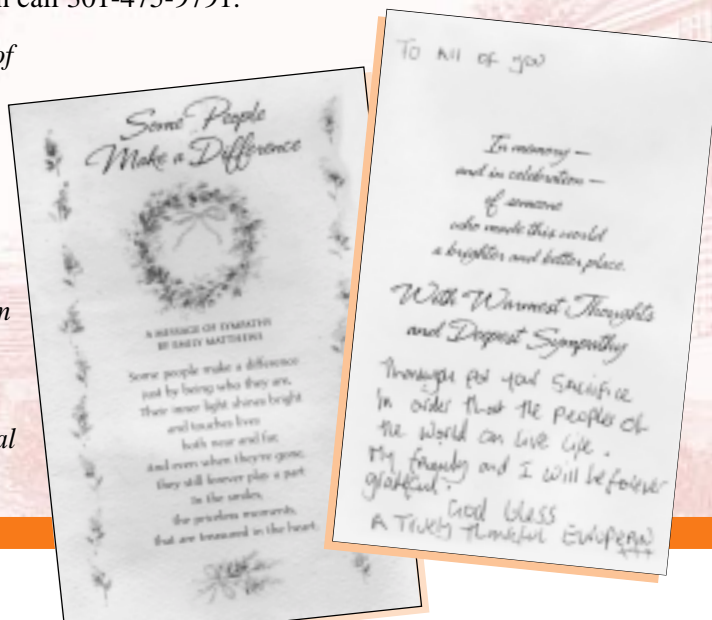 call 301-475-9791.
of
n
al
Some People
Make a Difference
A MESSAGE OF SYMPATHY
BY EMILY MATTHEWS
Some people make a difference
just by being who they are,
Their inner light shines bright
and touches lives
both near and far,
And even when they're gone,
they still forever play a part
In the smiles,
the priceless moments,
that are treasured in the heart.
To All of you
In memory —
and in celebration —
of someone
who made this world
a brighter and better place.
With Warmest Thoughts
and Deepest Sympathy
Thankyou for your Sacrifice
In order that the peoples of
the world can live life.
My family and I will be forever
grateful.
God bless
A Truely Thankful European